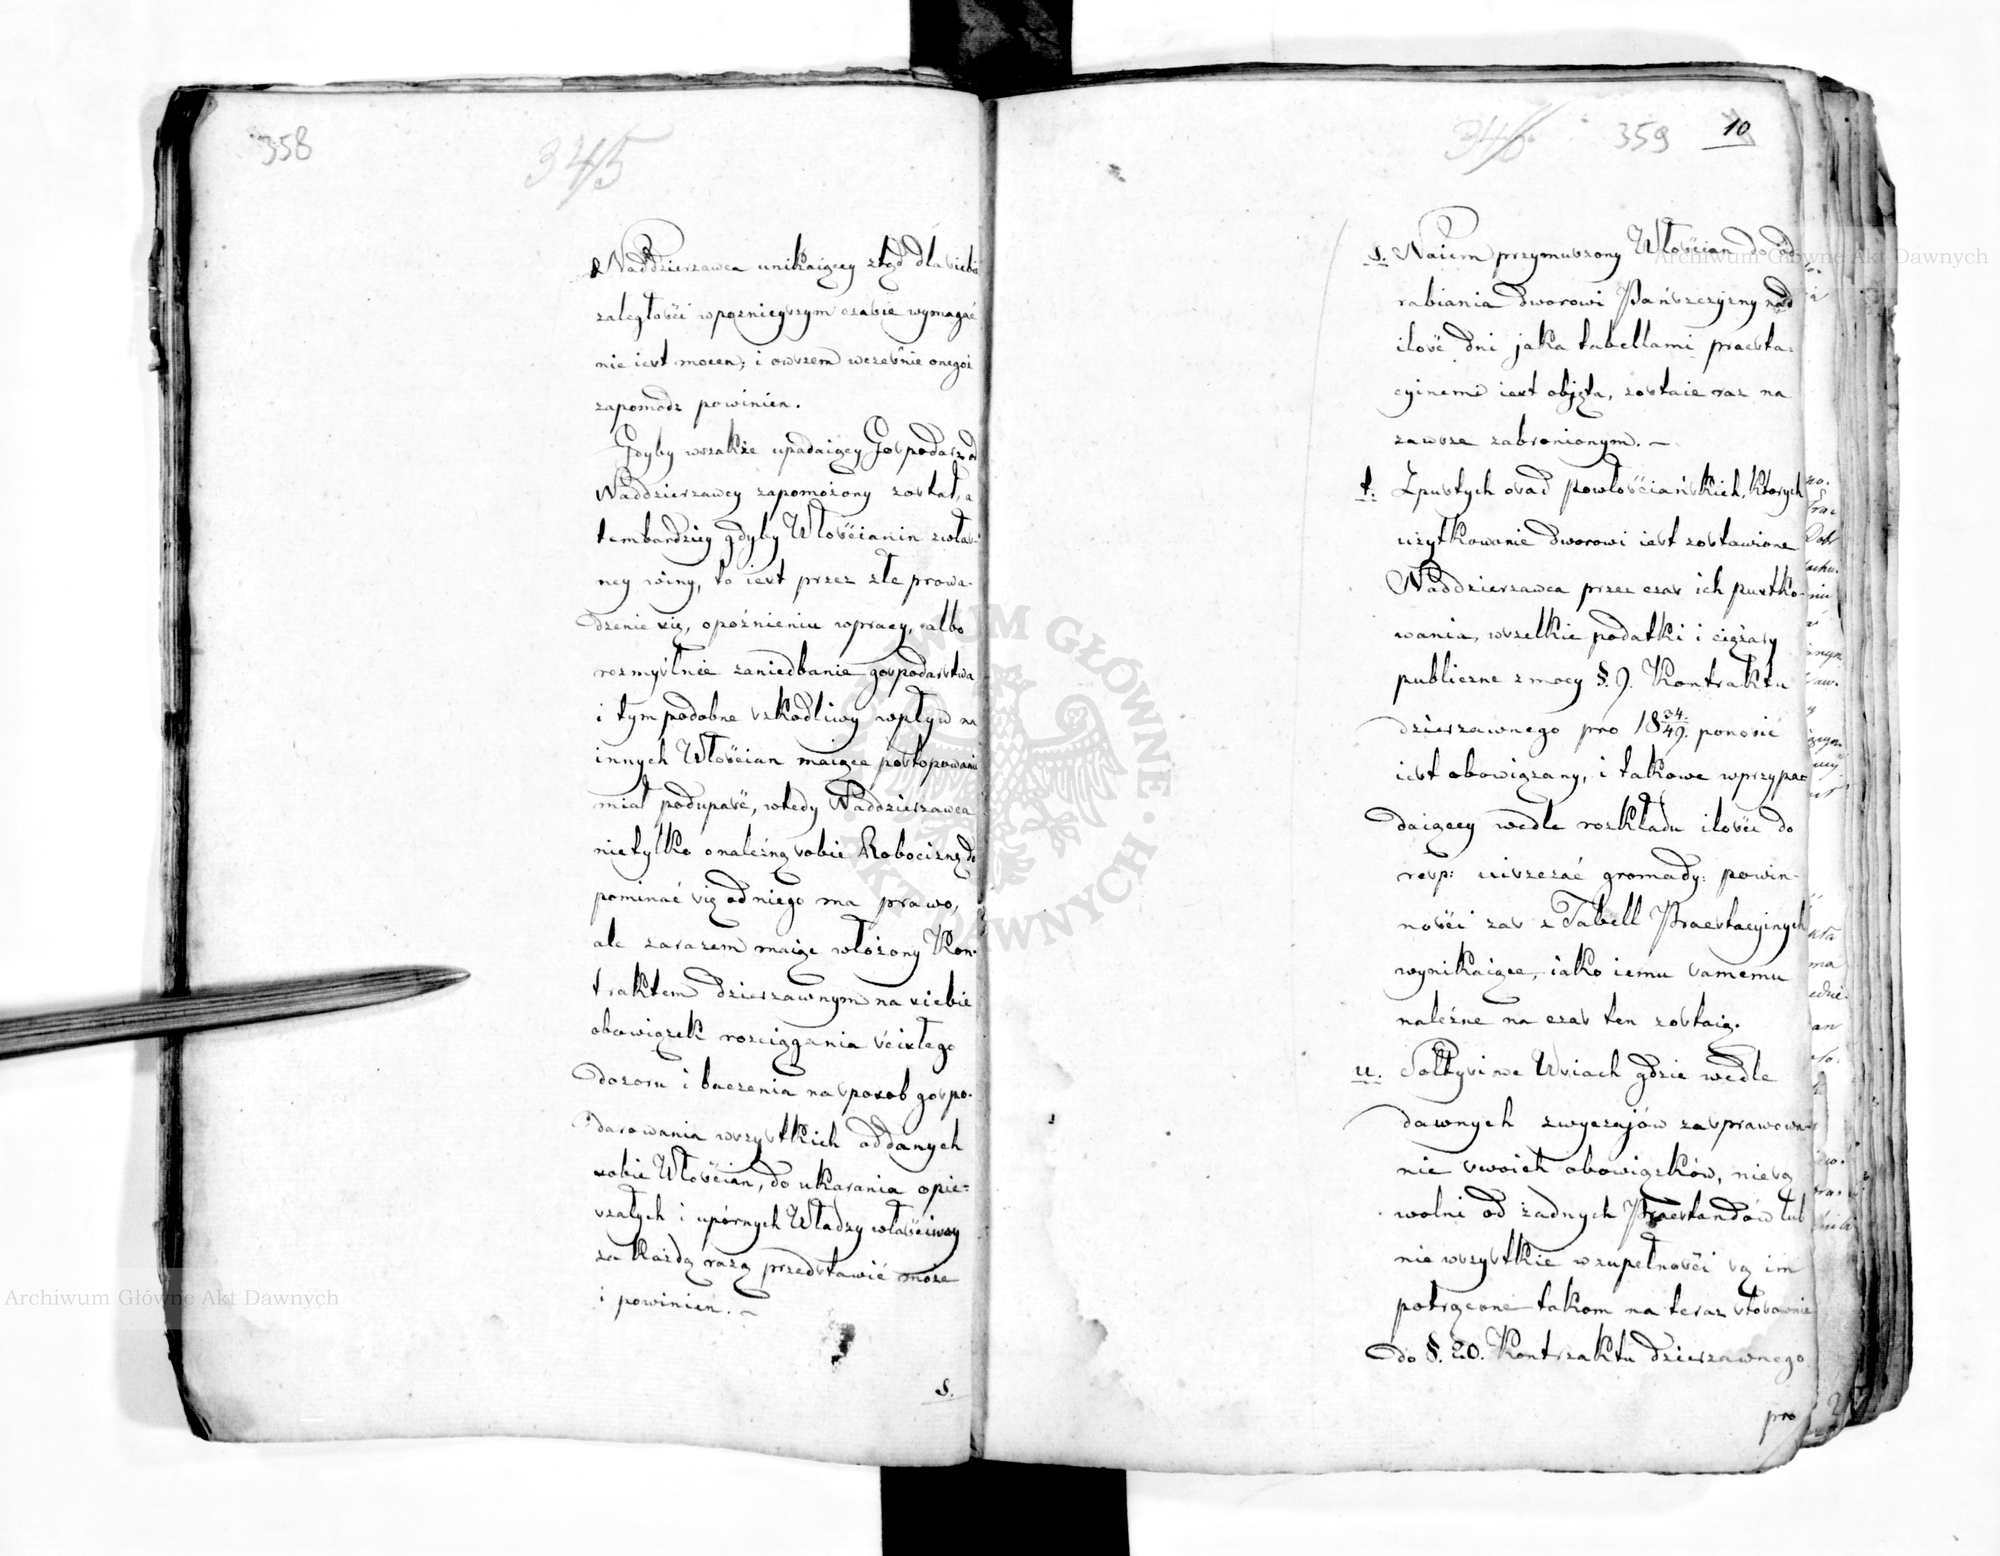 358
345
Naddzierzawca unikaiący ztąd dla siebie
zaległości wpoznieyszym czasie wymagać
nie iest mocen; i owszem wcześnie onegoż
zapomódz powinien.
Gdyby wszakże upadaiący Gospodarz od
Naddzierzawcy zapomożony został, a
tembardziey gdyby Włościanin zwłas-
ney winy, to iest przez złe prowa-
dzenie się, opoźnieniu wpracy, albo
rozmyślnie zaniedbanie gospodarstwa
i tym podobne szkodliwy wpływ na
innych Włościan maiące postępowanie
miał podupaść, wtedy Naddzierzawca
nietylko onależną sobie Robociznę do
pominać się odniego ma prawo,
ale zarazem maiąc włożony Kon-
traktem dzierzawnym na siebie
obowiązek rozciągania ścisłego
dozoru i baczenia na sposób gospo-
darowania wszystkich oddanych
sobie Włościan, do ukarania opie-
szałych i upórnych Władzy właściwey
za każdą razą przedstawić może
i powinien. —
s.
346
359
10
s. Naiem przymuszony Włościan do od
rabiania dworowi Pańszczyzny nad
ilość dni jaka tabellami praesta-
cyinemi iest objęta, zostaie raz na
zawsze zabronionym. —
t. Zpustych osad powłościańskich, ktorych
użytkowanie dworowi iest zostawione
Naddzierzawca przez czas ich pustko-
wania, wszelkie podatki i ciężary
publiczne z mocy §. 9. Kontraktu
dzierzawnego pro 18 34/49. ponosić
iest obowiązany, i takowe wprzypa-
daiący wedle rozkładu ilości do
resp: uiszczać gromady: powin-
ności zas z Tabell Praestacyinych
wynikaiące, iako iemu samemu
należne na czas ten zostaią.
u. Sołtysi we Wsiach gdzie wedle
dawnych zwyczajów za sprawowa-
nie swoich obowiązków, nie są
wolni od żadnych Praestandów lub
nie wszystkie w zupełności są im
potrącone takom na teraz stosownie
do §. 20. Kontraktu dzierzawnego
pro